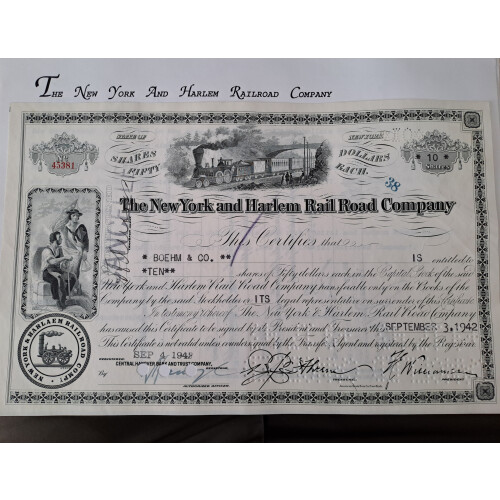 The New York And Harlem Railroad Company
STATE OF NEW YORK
No 45381
SHARES FIFTY DOLLARS EACH.
* 10 *
SHARES
38
The New York and Harlem Rail Road Company
This Certifies that
* BOEHM & CO. ** IS entitled to
*TEN** shares of Fifty dollars each in the Capital Stock of the said
New York and Harlem Rail Road Company transferable only on the Books of the
Company by the said Stockholder ITS legal representative on surrender of this Certificate
In testimony whereof The New York & Harlem Rail Road Company
has caused this Certificate to be signed by its President and Treasurer this SEPTEMBER 3, 1942
This Certificate is not valid unless countersigned by the Transfer Agent and registered by the Registrar
SEP 4 1942
CENTRAL HANOVER BANK AND TRUST COMPANY,
By
NEW YORK & HARLAEM RAILROAD COMPY